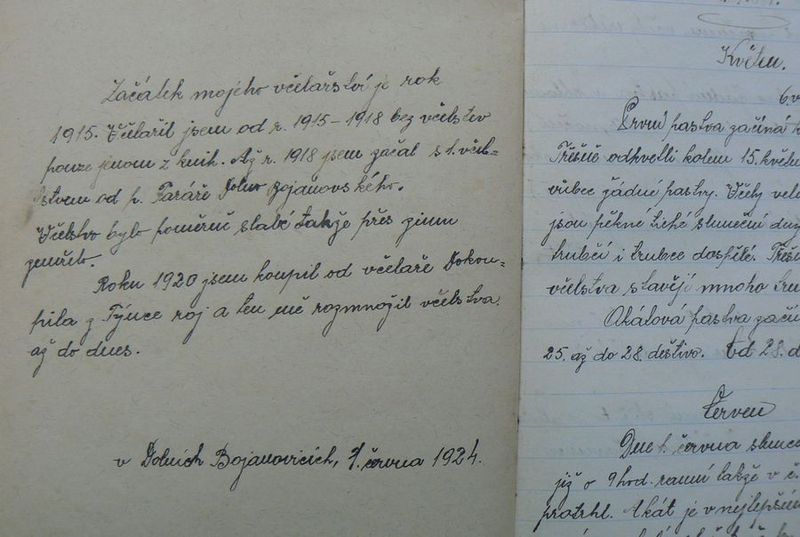 Začátek mojeho včelařství je rok
1915. Včelařil jsem od r. 1915–1918 bez včelstev
pouze jenom z knih. Až r. 1918 jsem začal s 1. včel=
stvem od p. Faráře Dolno Bojanovského.
Včelstvo bylo poměrně slabé takže přes zimu
zemřelo.
Roku 1920 jsem koupil od včelaře Dokou=
pila z Týnce roj a ten mě rozmnožil včelstva
až do dnes.
v Dolních Bojanovicích, 1. června 1924.
Květen.
6.
První pastva začíná
Třešně odkvetli kolem 15. květ
vůbec žádné pastvy. Včely
jsou pěkné tiché sluneční
trubčí i trubce dospělé.
včelstva stavějí mnoho
Akátová pastva začí
25. až do 28. deštivo. Od 28.
Červen
Dne 1. června slunce
již o 9 hod. ranní takže v
protrhl. Akát je v nejlepším